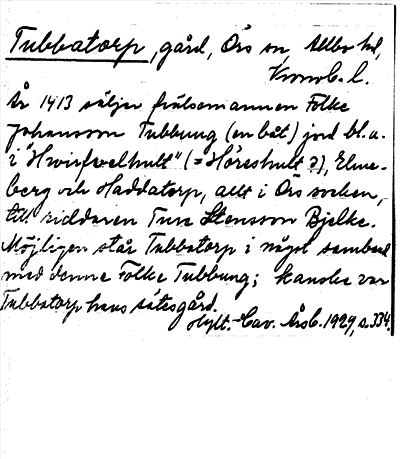 Tubbatorp, gård, Örs sn, Allbo hd,
Kronob. l.
År 1413 säljer frälsemannen Folke
Johansson Tubbung (en båt) jord bl.a.
i "Hwirfvelhult" (= Höreshult?), Elme-
berg och Haddatorp, allt i Örs socken,
till riddaren Ture Stensson Bjelke.
Möjligen står Tubbatorp i något samband
med denne Folke Tubbung; kanske var
Tubbatorp hans sätesgård.
Hylt.-Cav. Årsb. 1929, s. 334.